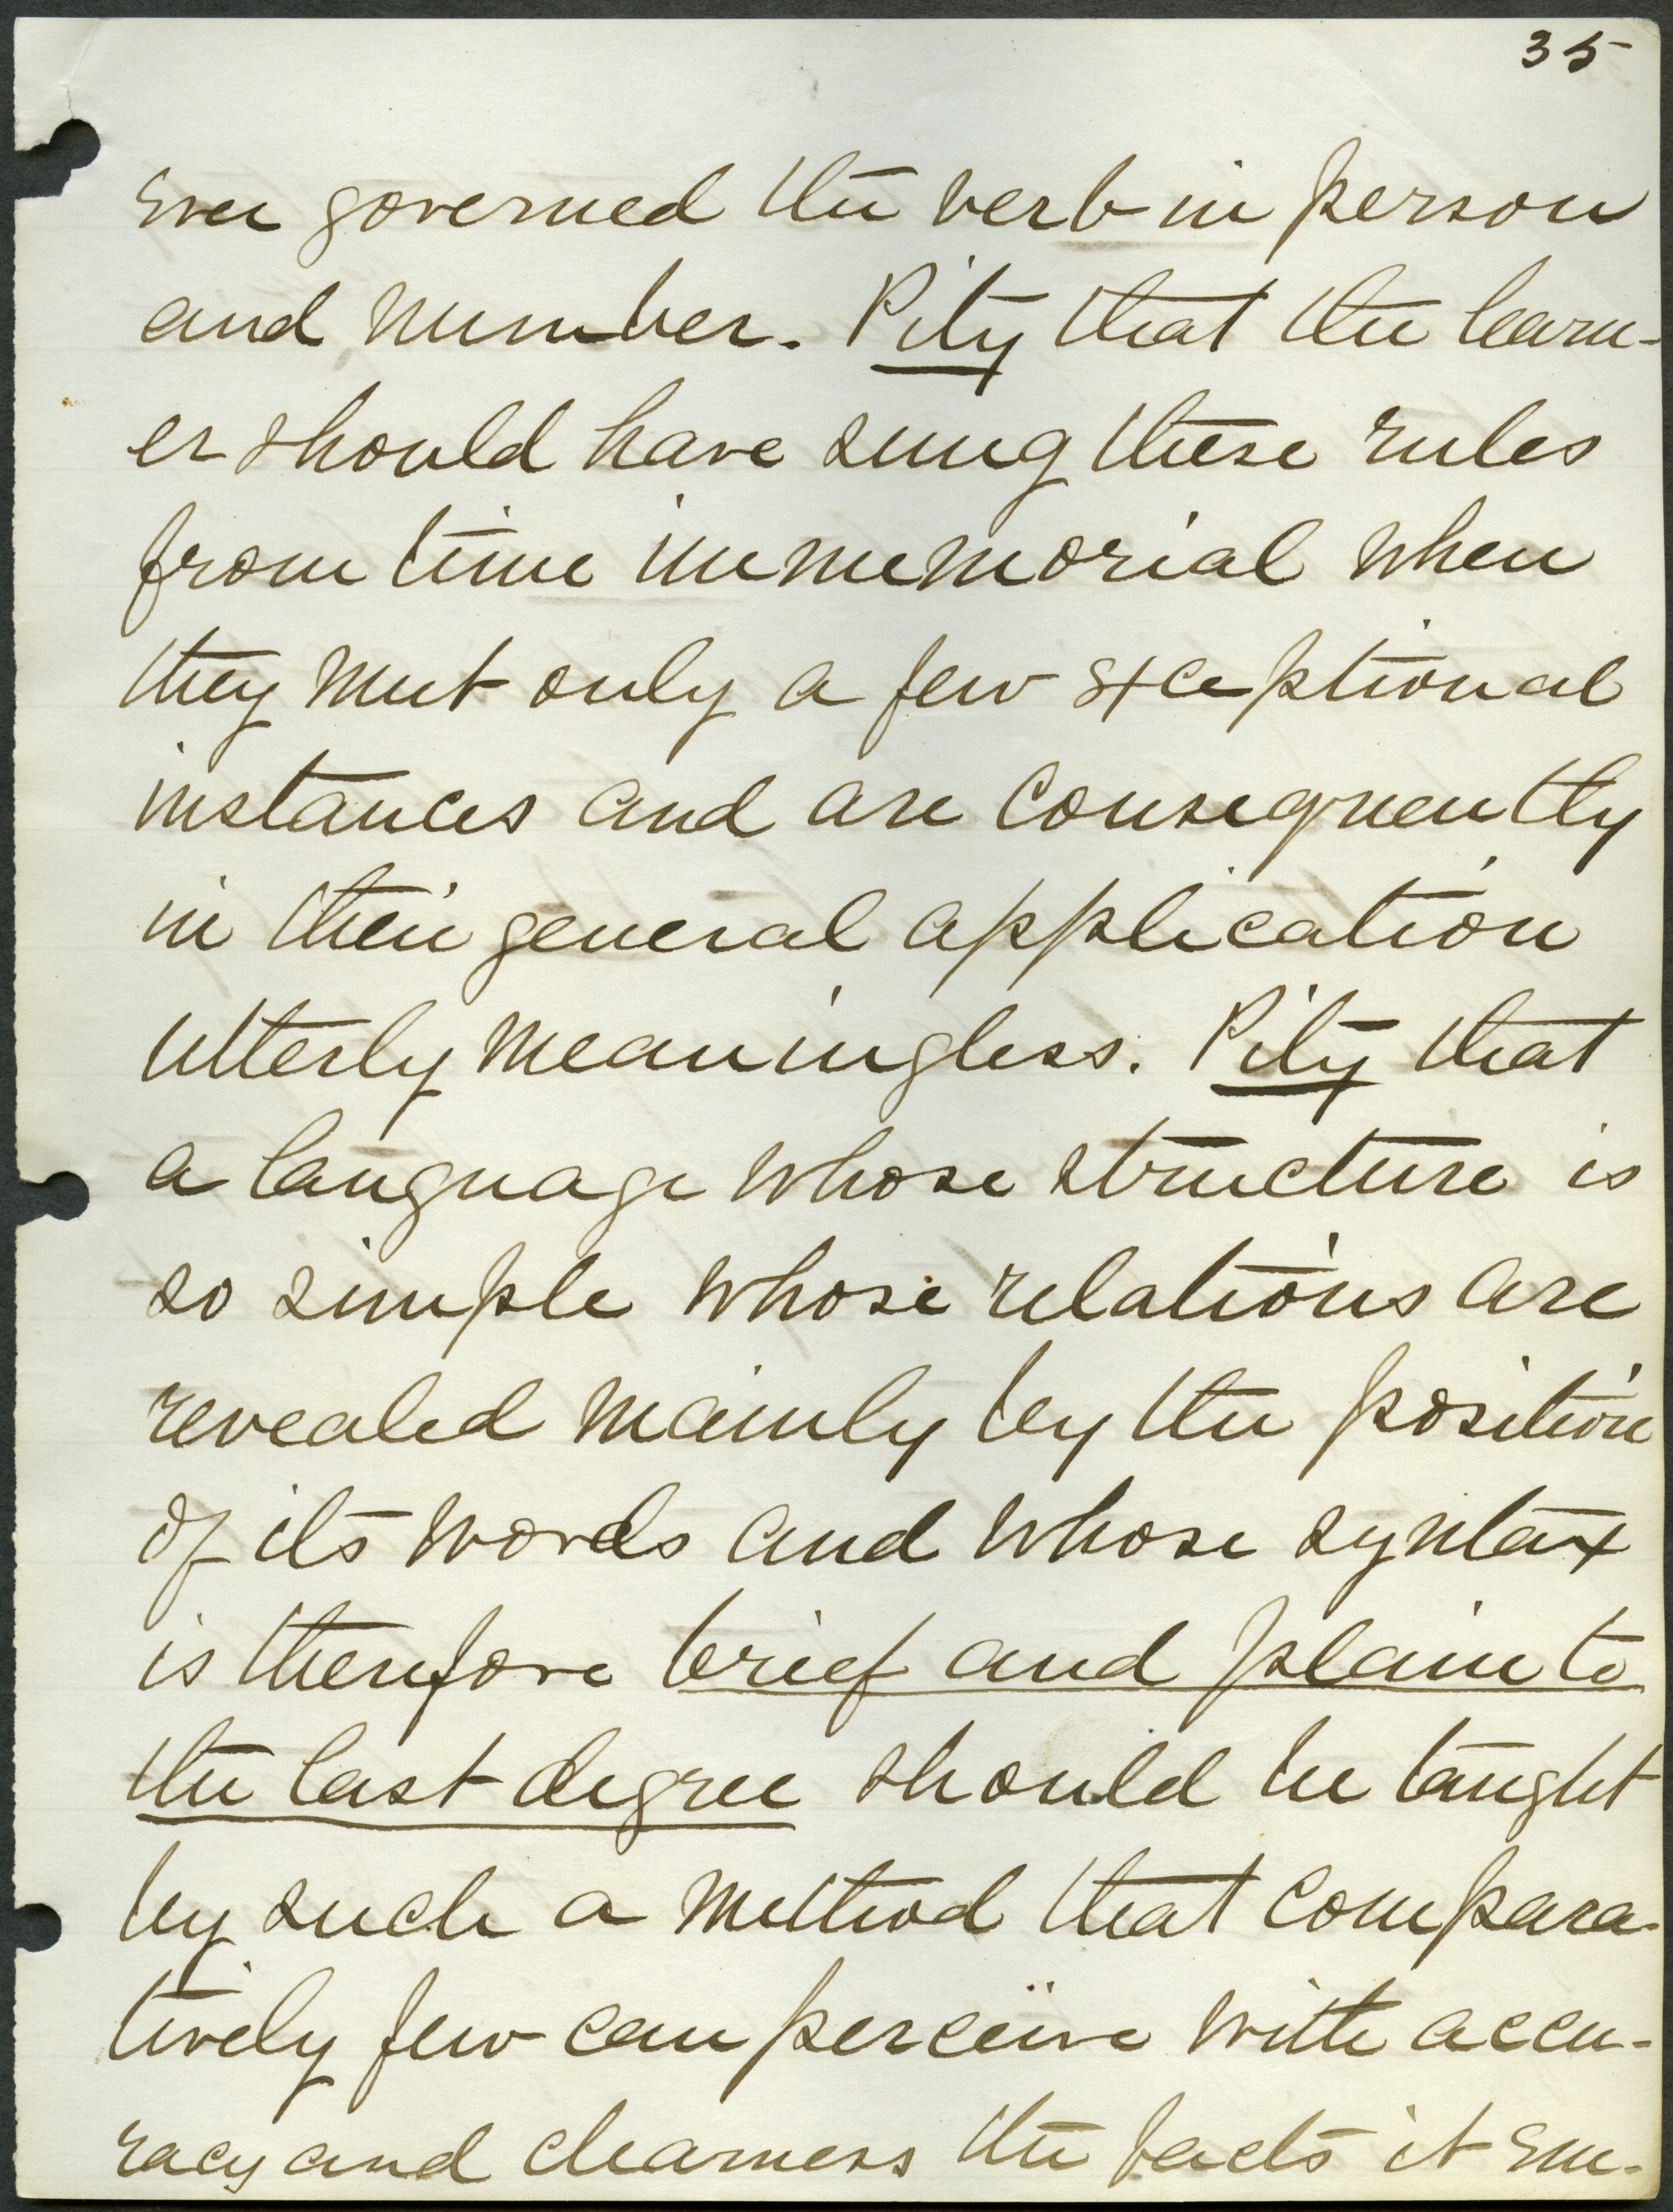 35
ever governed the verb in person
and number. Pity that the learn-
er should have sung these rules
from time immemorial when
they meet only a few exceptional
instances and are consequently
in their general application
utterly meaningless. Pity that
a language whose structure is
so simple whose relations are
revealed mainly by the position
of its words and whose syntax
is therefore brief and plain to
the last degree should be taught
by such a method that compara-
tively few can perceive with accu-
racy and clearness the facts it em-